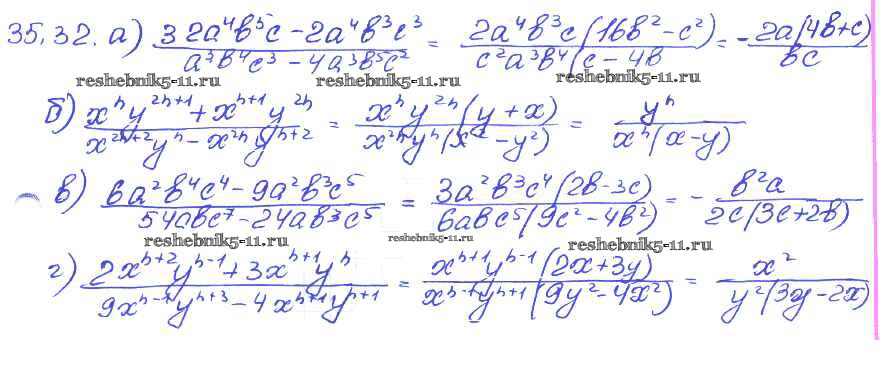 35.32. а) (32a⁴b⁵c - 2a⁴b³c³)/(a³b⁴c³ - 4a³b⁵c²) = 2a⁴b³c(16b² - c²)/(c²a³b⁴(c - 4b) = -2a(4b+c)/(bc)
reshebnik5-11.ru reshebnik5-11.ru reshebnik5-11.ru
б) (xⁿy²ⁿ⁺¹ + xⁿ⁺¹y²ⁿ)/(x²ⁿ⁺²yⁿ - x²ⁿyⁿ⁺²) = xⁿy²ⁿ(y + x)/(x²ⁿyⁿ(x² - y²)) = yⁿ/(xⁿ(x - y))
в) (6a²b⁴c⁴ - 9a²b³c⁵)/(54abc⁷ - 24ab³c⁵) = 3a²b³c⁴(2b - 3c)/(6abc⁵(9c² - 4b²)) = - b²a/(2c(3c+2b))
reshebnik5-11.ru reshebnik5-11.ru reshebnik5-11.ru
г) (2xⁿ⁺²yⁿ⁻¹ + 3xⁿ⁺¹yⁿ)/(9xⁿ⁻¹yⁿ⁺³ - 4xⁿ⁺¹yⁿ⁺¹) = xⁿ⁺¹yⁿ⁻¹(2x+3y)/(xⁿ⁻¹yⁿ⁺¹(9y² - 4x²)) = x²/(y²(3y - 2x))